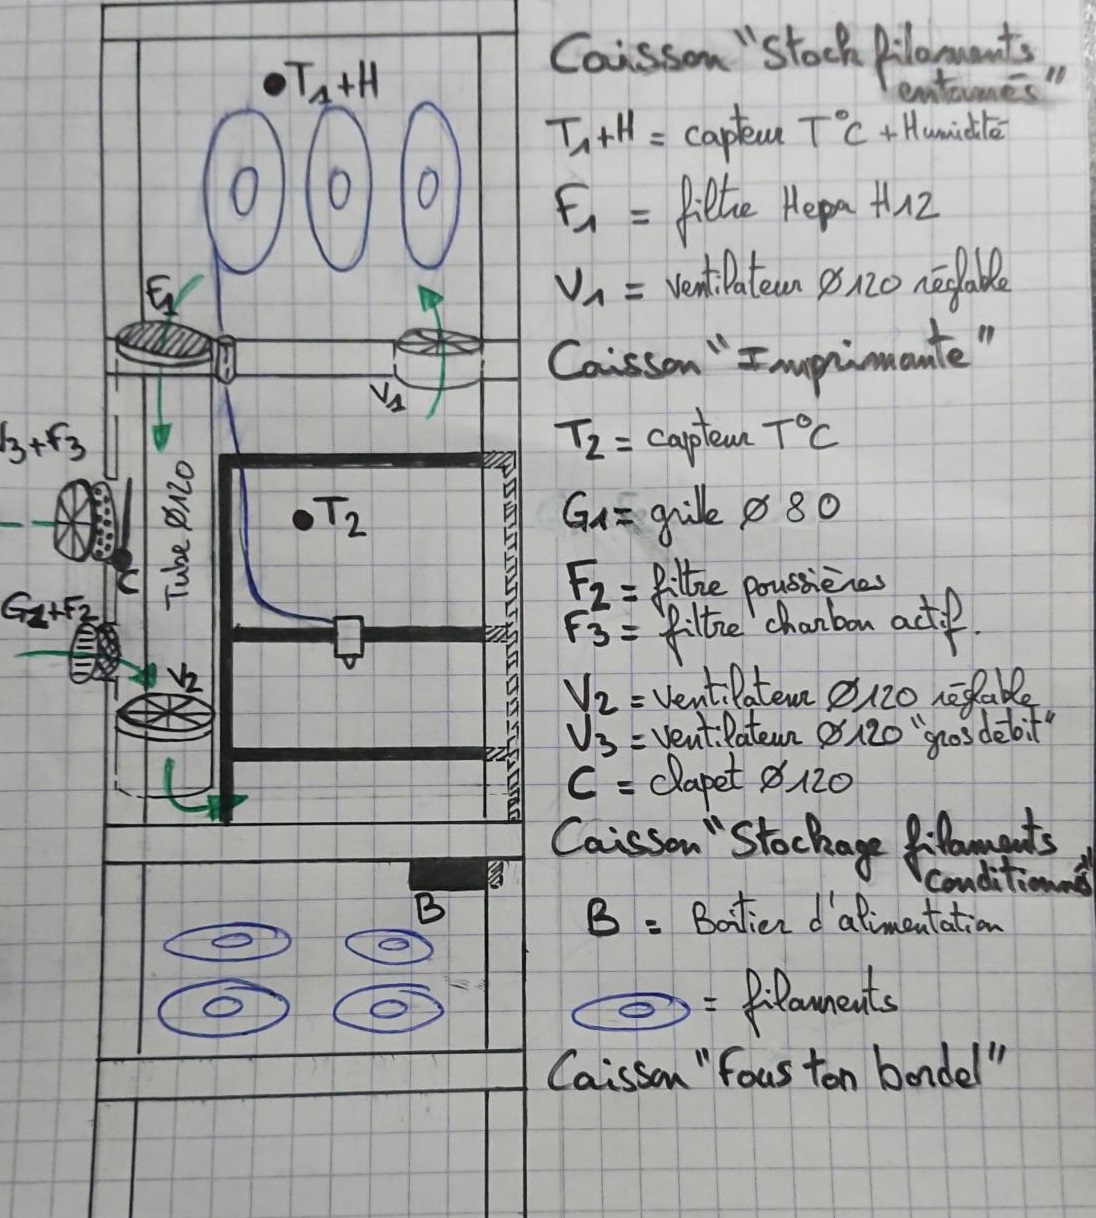 Caisson "Stock filaments
entamés"
T1+H
T1+H = capteur T°C + Humidité
F1 = filtre Hepa H12
F1
V1 = ventilateur Ø120 réglable
Caisson "Imprimante"
V1
T2 = capteur T°C
V3+F3
Tube Ø120
T2
G1 = grille Ø 80
C
F2 = filtre poussières
G1+F2
F3 = filtre charbon actif.
V2
V2 = ventilateur Ø120 réglable
V3 = ventilateur Ø120 "gros débit"
C = clapet Ø120
Caisson "Stockage filaments
conditionnés"
B
B = Boîtier d'alimentation
= filaments
Caisson "Fous ton bordel"